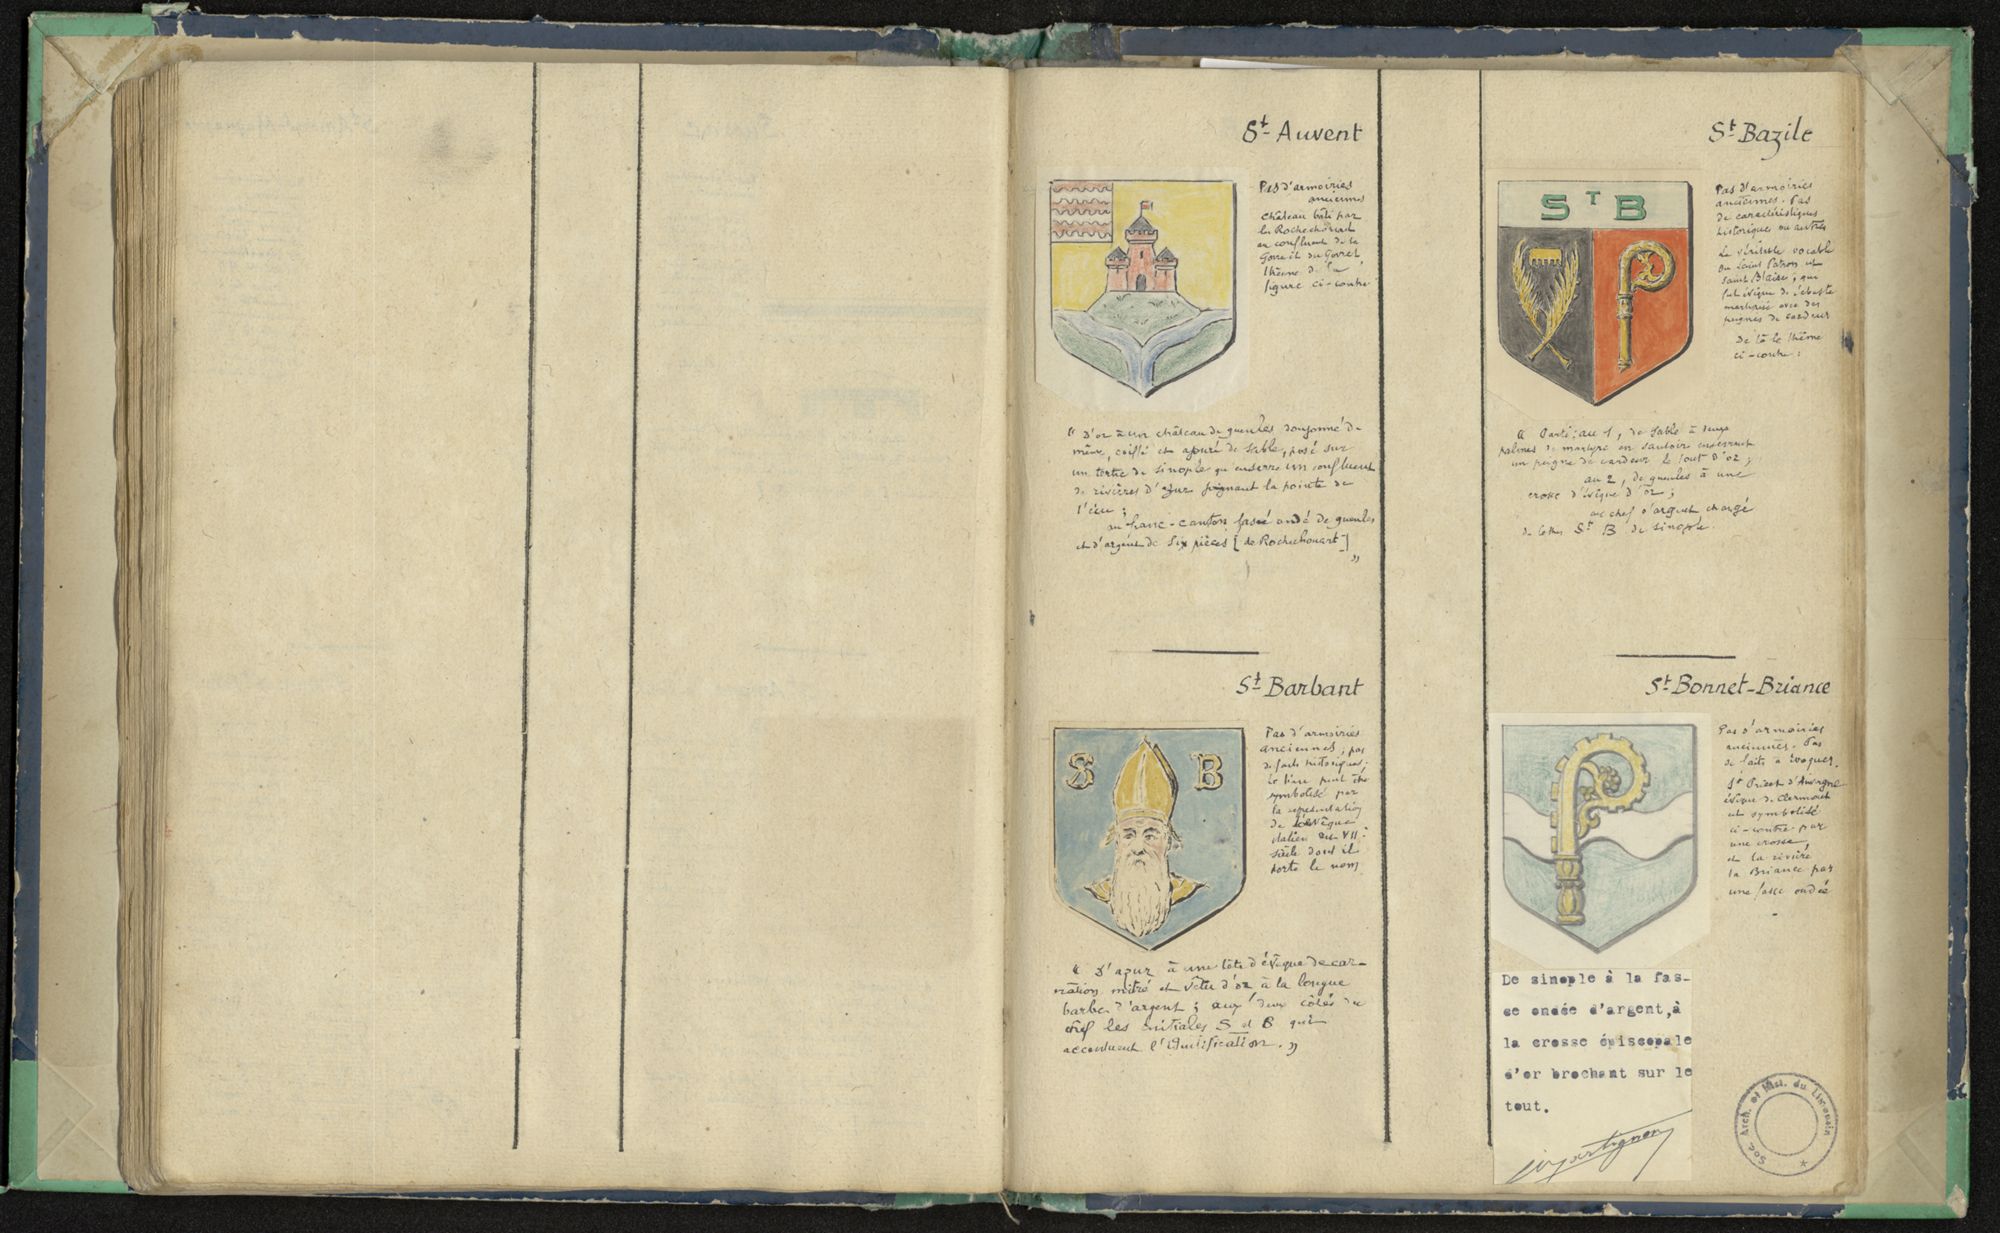 St Auvent
Pas d'armoiries
anciennes
château bâti par
les Rochechouart
au confluent de la
Gorre et du Gorret,
thème de la
figure ci-contre
« D'or à un château de gueules donjonné de
même, coiffé et ajouré de sable, posé sur
un tertre de sinople qu'enserre un confluent
de rivières d'azur joignant la pointe de
l'écu ;
au franc-canton fascé ondé de gueules
et d'argent de six pièces [de Rochechouart]
»
St Barbant
S B
Pas d'armoiries
anciennes ; pas
de faits historiques ;
le lieu peut être
symbolisé par
la représentation
de l'évêque
italien du VIIe
siècle dont il
porte le nom
« D'azur à une tête d'évêque de car-
nation mitré et vêtu d'or à la longue
barbe d'argent ; aux deux côtés du
chef les initiales S et B qui
accentuent l'identification. »
St Bazile
ST B
Pas d'armoiries
anciennes. Pas
de caractéristiques
historiques ou autres
Le véritable vocable
du Saint Patron est
Saint Blaise, qui
fut évêque de Sébaste
martyrisé avec des
peignes de cardeur
De là le thème
ci-contre :
« Parti : au 1, de sable à deux
palmes de martyre en sautoir enserrant
un peigne de cardeur le tout d'or ;
au 2, de gueules à une
crosse d'évêque d'or ;
au chef d'argent chargé
de lettres St B de sinople.
St Bonnet-Briance
Pas d'armoiries
anciennes. Pas
de faits à évoquer.
St Priest d'Auvergne
évêque de Clermont
est symbolisé
ci-contre par
une crosse
et la rivière
la Briance par
une fasce ondée
De sinople à la fas-
ce ondée d'argent,à
la crosse épiscopale
d'or brochant sur le
tout.
Soc. Arch. et Hist. du Limousin